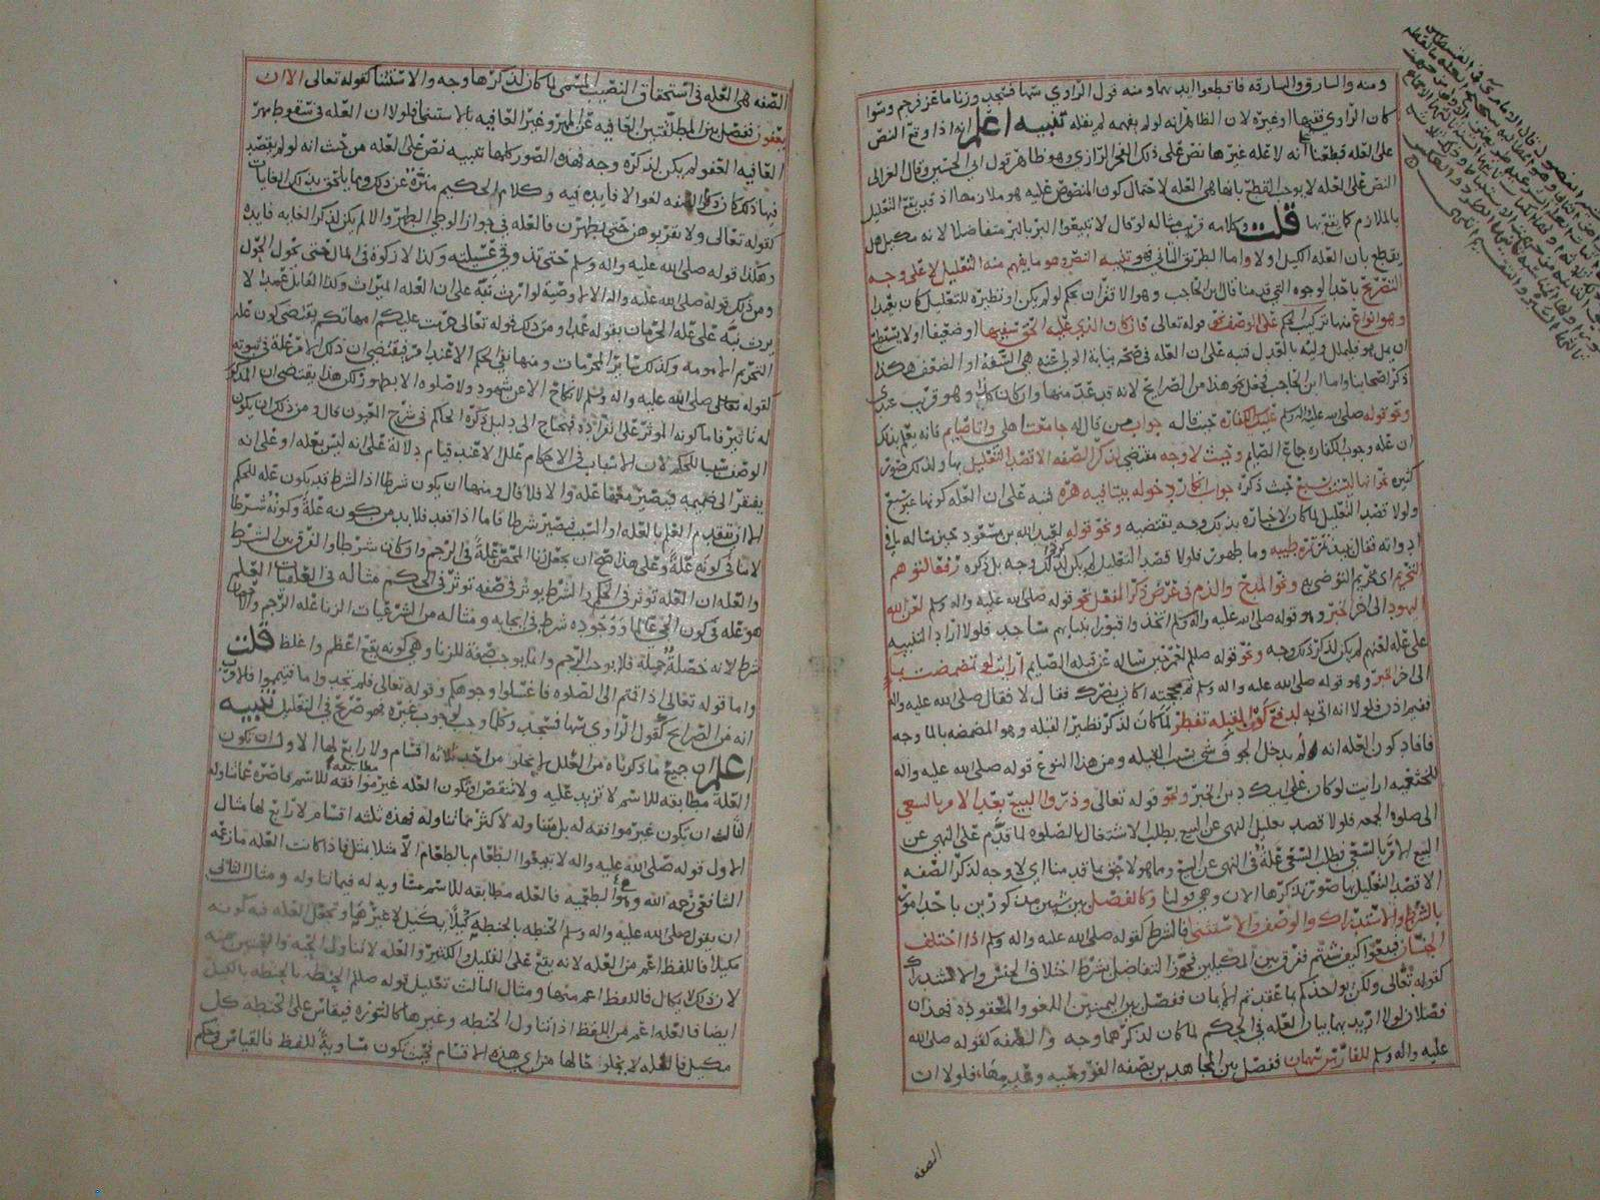 ومنه والسارق والسارقة فاقطعوا ايديهما ومنه قول الراوي سها فسجد وزنا ماعز فرجم وسوا
كان الراوي فقيها او غيره لان الظاهر انه لو لم يفهمه لم يقله تنبيه اعلم انه اذا وقع النص
على العله قطعنا انه لا عله غيرها نص على ذلك الفخر الرازي وهو ظاهر قول ابي الحسين وقال الغزالي
النص على العله لا يوجب القطع بانها هي العله لاحتمال كون المنصوص عليه هو ملازمها اذ قد يقع التعليل
بالملازم كما يقع بها قلت وكلامه قريب مثاله لو قال لا تبيعوا البر بالبر متفاضلا لانه مكيل هل
يقطع بان العله الكيل اولا واما الطريق الثاني فهو تنبيه النص وهو ما يفهم منه التعليل لا على وجه
التصريح باحد الوجوه التي قدمنا قال ابن الحاجب وهو الاقتران بحكم لو لم يكن او نظيره للتعليل كان بعيدا
وهو انواع منها ترتيب الحكم على الوصف نحو قوله تعالى فان كان الذي عليه الحق سفيها او ضعيفا او لا يستطيع
ان يمل هو فليملل وليه بالعدل فنبه على ان العله في صحة نيابة الولي عنه هي السفه او الضعف هكذا
ذكر اصحابنا واما ابن الحاجب فجعل نحو هذا من الصرايح لانه قد عد منها وان كان كذا وهو قريب عندي
ونحو قوله صلى الله عليه واله وسلم عليك الكفاره حيث قاله جوابا لمن قال له جامعت اهلي وانا صايم فانه يعلم بذلك
ان عله وجوب الكفاره جماع الصايم وحيث لا وجه مقتضي لذكر الصفه الا قصد التعليل بها ولذلك صور
كثيره نحو انها ليست بسبع حيث ذكره جواب انكار دخوله بيتا فيه هره فنبه على ان العله كونها غير سبع
ولولا قصد التعليل لما كان لاخباره بذلك وجه يقتضيه ونحو قوله لعبد الله بن مسعود حين ساله ما في
اداوته فقال نبيذ تمر تمره طيبه وما طهور فلولا قصد التعليل لم يكن لذلك وجه بل ذكره رفعا لتوهم
التحريم اي تحريم التوضي به ونحو المدح والذم في عرض ذكر الفعل نحو قوله صلى الله عليه واله وسلم لعن الله
اليهود الى اخر الخبر وهو قوله صلى الله عليه واله وسلم اتخذوا قبور انبيائهم مساجد فلولا اراد التنبيه
على عله لعنهم لم يكن لذكر ذلك وجه ونحو قوله صلعم لعمر حين ساله عن قبله الصايم ارايت لو تمضمضت بما
الى اخر الخبر وهو قوله صلى الله عليه واله وسلم ثم مججته اكان يضرك فقال لا فقال صلى الله عليه واله
ففيم اذن فلولا انه اتى به لدفع كون القبله تفطر لما كان لذكر نظير القبله وهو المضمضه بالما وجه
فافاد كون العله انه لم يدخل الجوف شي بسبب القبله ومن هذا النوع قوله صلى الله عليه واله
للخثعميه ارايت لو كان على ابيك دين الخبر ونحو قوله تعالى وذروا البيع بعد الامر بالسعي
الى صلوه الجمعه فلولا قصد تعليل النهي عن البيع بطلب الاشتغال بالصلوه لما قدم على النهي عن
البيع الامر بالسعي فطلب السعي علة في النهي عن البيع ومما هو لاحق بما قدمنا اي لا وجه لذكر الصفه
الا قصد التعليل بها صور نذكرها الان وهي قولنا وكالفصل بين شيين مذكورين باحد امور
بالشرط والاستدراك والوصف والاستثنى فالشرط كقوله صلى الله عليه واله وسلم اذا اختلف
الجنسان فبيعوا كيف شئتم ففرق بين المكيلين فجوز التفاضل بشرط اختلاف الجنس والاستدراك
كقوله تعالى ولكن يواخذكم بما عقدتم الايمان ففصل بين اليمينين اللغو والمعقوده فهذان
فصلان لولا اريد بهما بيان العله في الحكم لما كان لذكرهما وجه والصفه كقوله صلى الله
عليه واله وسلم للفارس سهمان ففصل بين المجاهدين بصفه الفروسيه وعدمها، فلولا ان
الصفه
الصفه هي العله في استحقاق النصيب المسمى لما كان لذكرها وجه والاستثنا كقوله تعالى الا ان
يعفون ففصل بين المطلقتين العافيه عن المهر وغير العافيه بالاستثنا فلولا ان العله في سقوط مهر
العافيه العفو لم يكن لذكره وجه فهذه الصور كلها تنبيه نص على العله من حيث انه لو لم يقصد
فيها ذلك كان ذكر الصفه لغوا لا فايده فيه وكلام الحكيم منزه عن ذلك ومما يلحق بذلك الغايات
كقوله تعالى ولا تقربوهن حتى يطهرن فالعله في جواز الوطي الطهر والا لم يكن لذكر الغايه فايده
وهكذا قوله صلى الله عليه واله وسلم حتى تذوقي عسيلته وكذا لا زكوة في المال حتى يحول الحول
ومن ذلك قوله صلى الله عليه واله الا لا وصية لوارث نبه على ان العله الميراث وكذا القاتل عمدا لا
يرث نبه على عله الحرمان بقوله عمدا ومن ذلك قوله تعالى حرمت عليكم امهاتكم يقتضي كون عله
التحريم الامومه وكذلك ساير المحرمات ومنها نفي الحكم الا عند امر فيقتضي ان ذلك الامر عله في ثبوته
كقوله صلى الله عليه واله وسلم لا نكاح الا من شهود ولا صلوه الا بطهور لكن هذا يقتضي ان المذكور
له تاثير فاما كونه الموثر على انفراده فيحتاج الى دليل ذكره الحاكم في شرح العيون قال ومن ذلك ان يكون
الوصف سببا للحكم لان الاسباب في الاحكام علل الا عند قيام دلالة على انه ليس بعله او على انه
يفتقر الى ضميمه فيصير معها عله والا فلا قال ومنها ان يكون شرطا اذ الشرط قد يكون عله للحكم
الا ان يتقدم العلم بالعله او السبب فيصير شرطا فاما اذا فقد فلا بد من كونه علة وكونه شرطا
لا ينافي كونه علة وعلى هذا صح ان يجعل الاحصان علة في الرجم وان كان شرطا والفرق بين الشرط
والعله ان العله توثر في الحكم والشرط يوثر في صفه توثر في الحكم مثاله في العقليات العلم
هو عله في كون الحي عالما ووجوده شرط في ايجابه ومثاله من الشرعيات الزنا عله الرجم والاحصان
شرط لانه خصلة جميلة فلا يوجب الرجم وانما يوجب صفة للزنا وهي كونه يقع اعظم واغلظ قلت
واما قوله تعالى اذا قمتم الى الصلوه فاغسلوا وجوهكم وقوله تعالى فلم تجدوا ما فتيمموا فالاقرب
انه من الصرايح كقول الراوي سها فسجد وكلما وجب لوجوب غيره فهو صريح في التعليل تنبيه
اعلم ان جميع ما ذكرناه من العلل لا يخلوا من احد ثلاثه اقسام ولا رابع لها الاول ان تكون
العله مطابقه للاسم لا تزيد عليه ولا تنقص او تكون العله غير موافقه للاسم قاصره عما تناوله
الثالث ان يكون غير موافقه له بل متناوله لاكثر مما تناوله فهذه ثلثه اقسام لا رابع لها مثال
الاول قوله صلى الله عليه واله لا تبيعوا الطعام بالطعام الا مثلا بمثل فاذا كانت العله ما زعمه
الشافعي رحمه الله وهو الطعميه فالعله مطابقه للاسم مساويه له فيما تناوله ومثال الثاني
ان يقول صلى الله عليه واله وسلم الحنطه بالحنطه كيلا بكيل لا غيرها وتجعل العله فيه كونه
مكيلا فاللفظ اعم من العله لانه يقع على القليل والكثير والعله لا تتناول الحبه والحبتين منه
لان ذلك لا يكال فاللفظ اعم منها ومثال الثالث تعليل قوله صلعم الحنطه بالحنطه بالكيل
ايضا فالعله اعم من اللفظ اذ تتناول الحنطه وغيرها كالنوره فيقاس على الحنطه كل
مكيل فالعله لا يخلوا حالها من اي هذه الاقسام فحيث تكون مساوية للفظ فالقياس وحكم